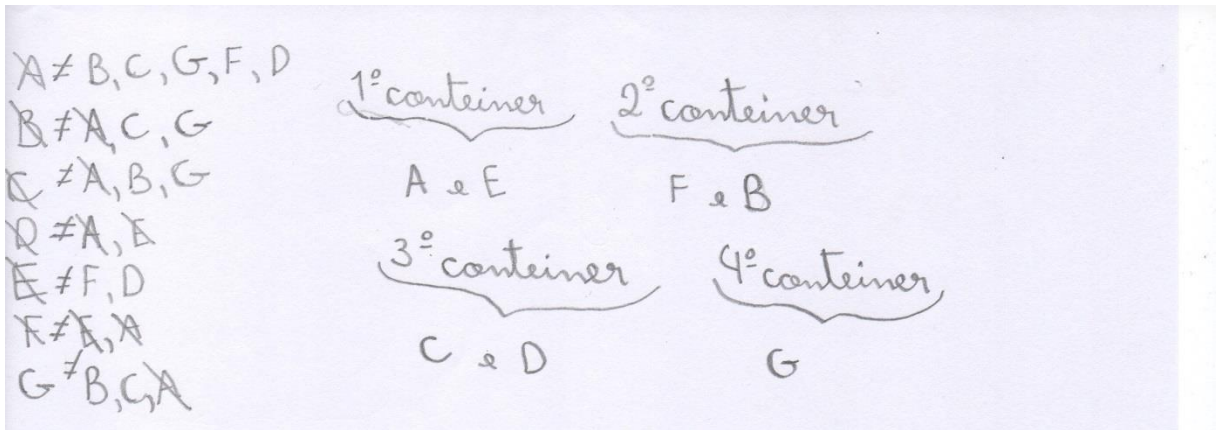 A ≠ B, C, G, F, D
B ≠ A, C, G
C ≠ A, B, G
D ≠ A, E
E ≠ F, D
F ≠ E, A
G ≠ B, C, A
1º conteiner
2º conteiner
A e E
F e B
3º conteiner
4º conteiner
C e D
G